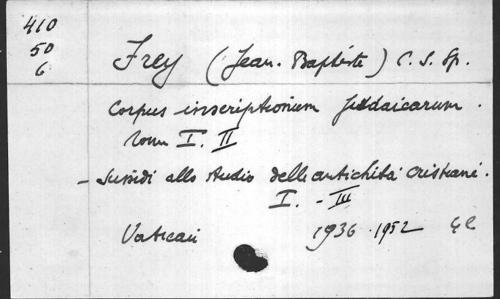 410
50
6
Frey (Jean-Baptiste) C. S. Sp.
Corpus inscriptionum Judaicarum.
Tom I. II
- Sussidi allo studio delle antichità cristiane.
I. - III
Vatican
1936 - 1952